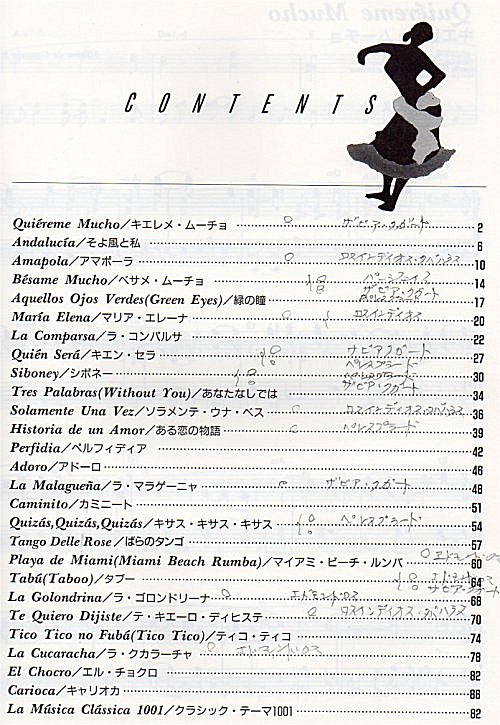 CONTENTS
Quiéreme Mucho／キエレメ・ムーチョ 2
Andalucía／そよ風と私 6
Amapola／アマポーラ 10
Bésame Mucho／ベサメ・ムーチョ 14
Aquellos Ojos Verdes(Green Eyes)／緑の瞳 17
María Elena／マリア・エレーナ 20
La Comparsa／ラ・コンパルサ 22
Quién Será／キエン・セラ 27
Siboney／シボネー 30
Tres Palabras(Without You)／あなたなしでは 34
Solamente Una Vez／ソラメンテ・ウナ・ベス 36
Historia de un Amor／ある恋の物語 39
Perfidia／ペルフィディア 42
Adoro／アドーロ 46
La Malagueña／ラ・マラゲーニャ 48
Caminito／カミニート 51
Quizás,Quizás,Quizás／キサス・キサス・キサス 54
Tango Delle Rose／ばらのタンゴ 57
Playa de Miami(Miami Beach Rumba)／マイアミ・ビーチ・ルンバ 60
Tabú(Taboo)／タブー 64
La Golondrina／ラ・ゴロンドリーナ 68
Te Quiero Dijiste／テ・キエーロ・ディヒステ 70
Tico Tico no Fubá(Tico Tico)／ティコ・ティコ 74
La Cucaracha／ラ・クカラーチャ 78
El Chocro／エル・チョクロ 82
Carioca／キャリオカ 86
La Música Clássica 1001／クラシック・テーマ1001 82